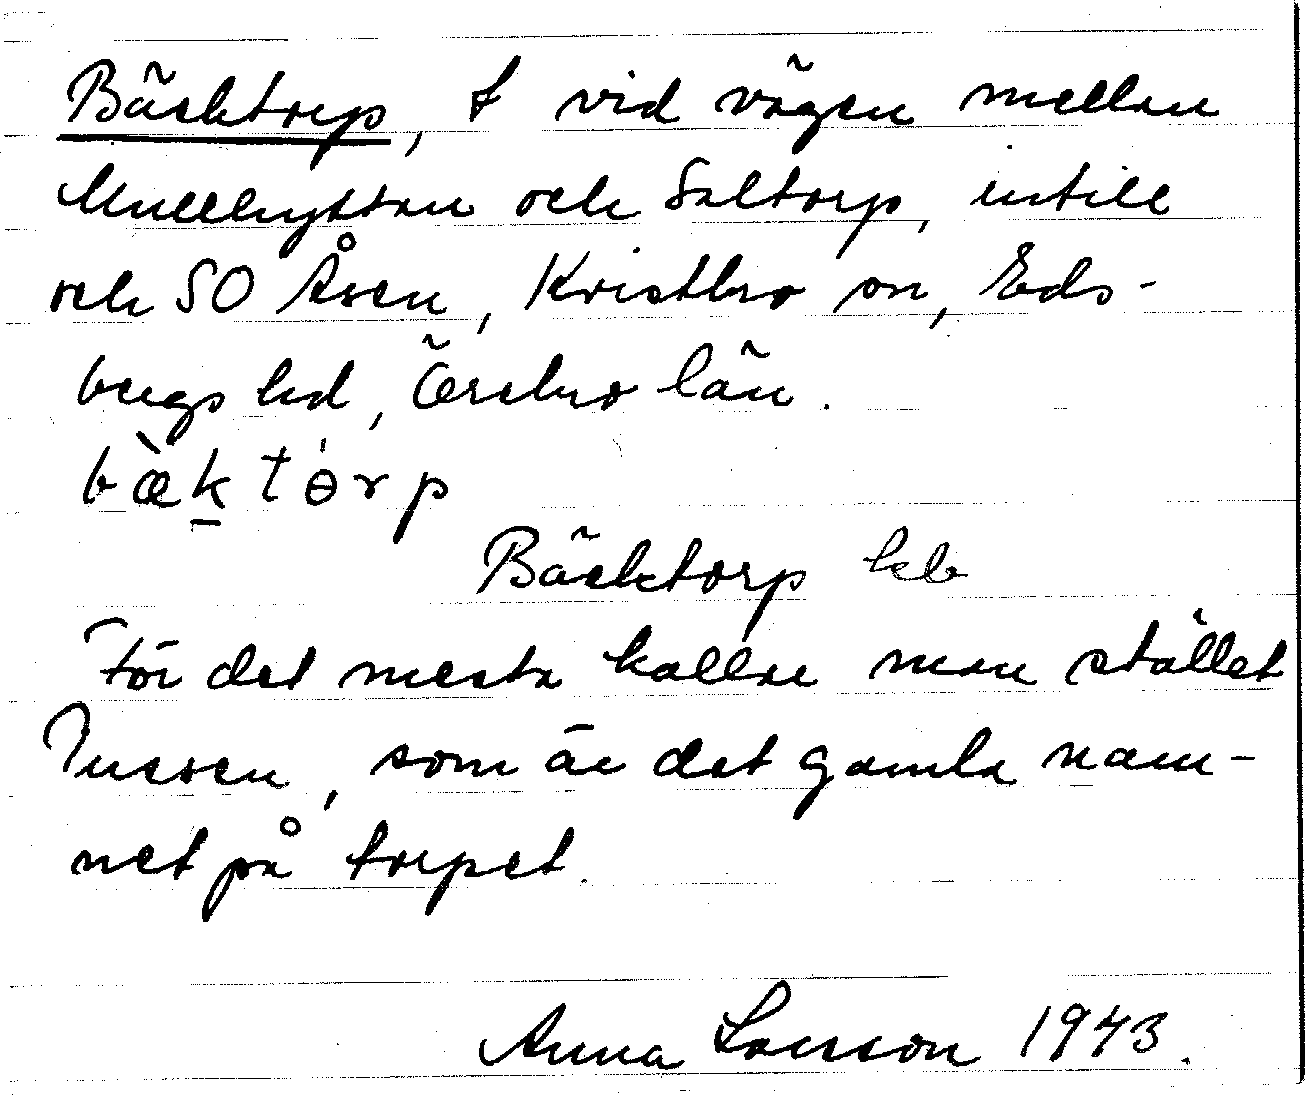 Bäcktorp, t vid vägen mellan
Mullhyttan och Saltorp, intill
och SO Åsen, Kvistbro sn, Eds-
bergs hd, Örebro län.
bæ̀k tɵ̀rp
Bäcktorp kb
För det mesta kallar man stället
som är det gamla nam-
net på torpet.
Anna Larsson 1943.